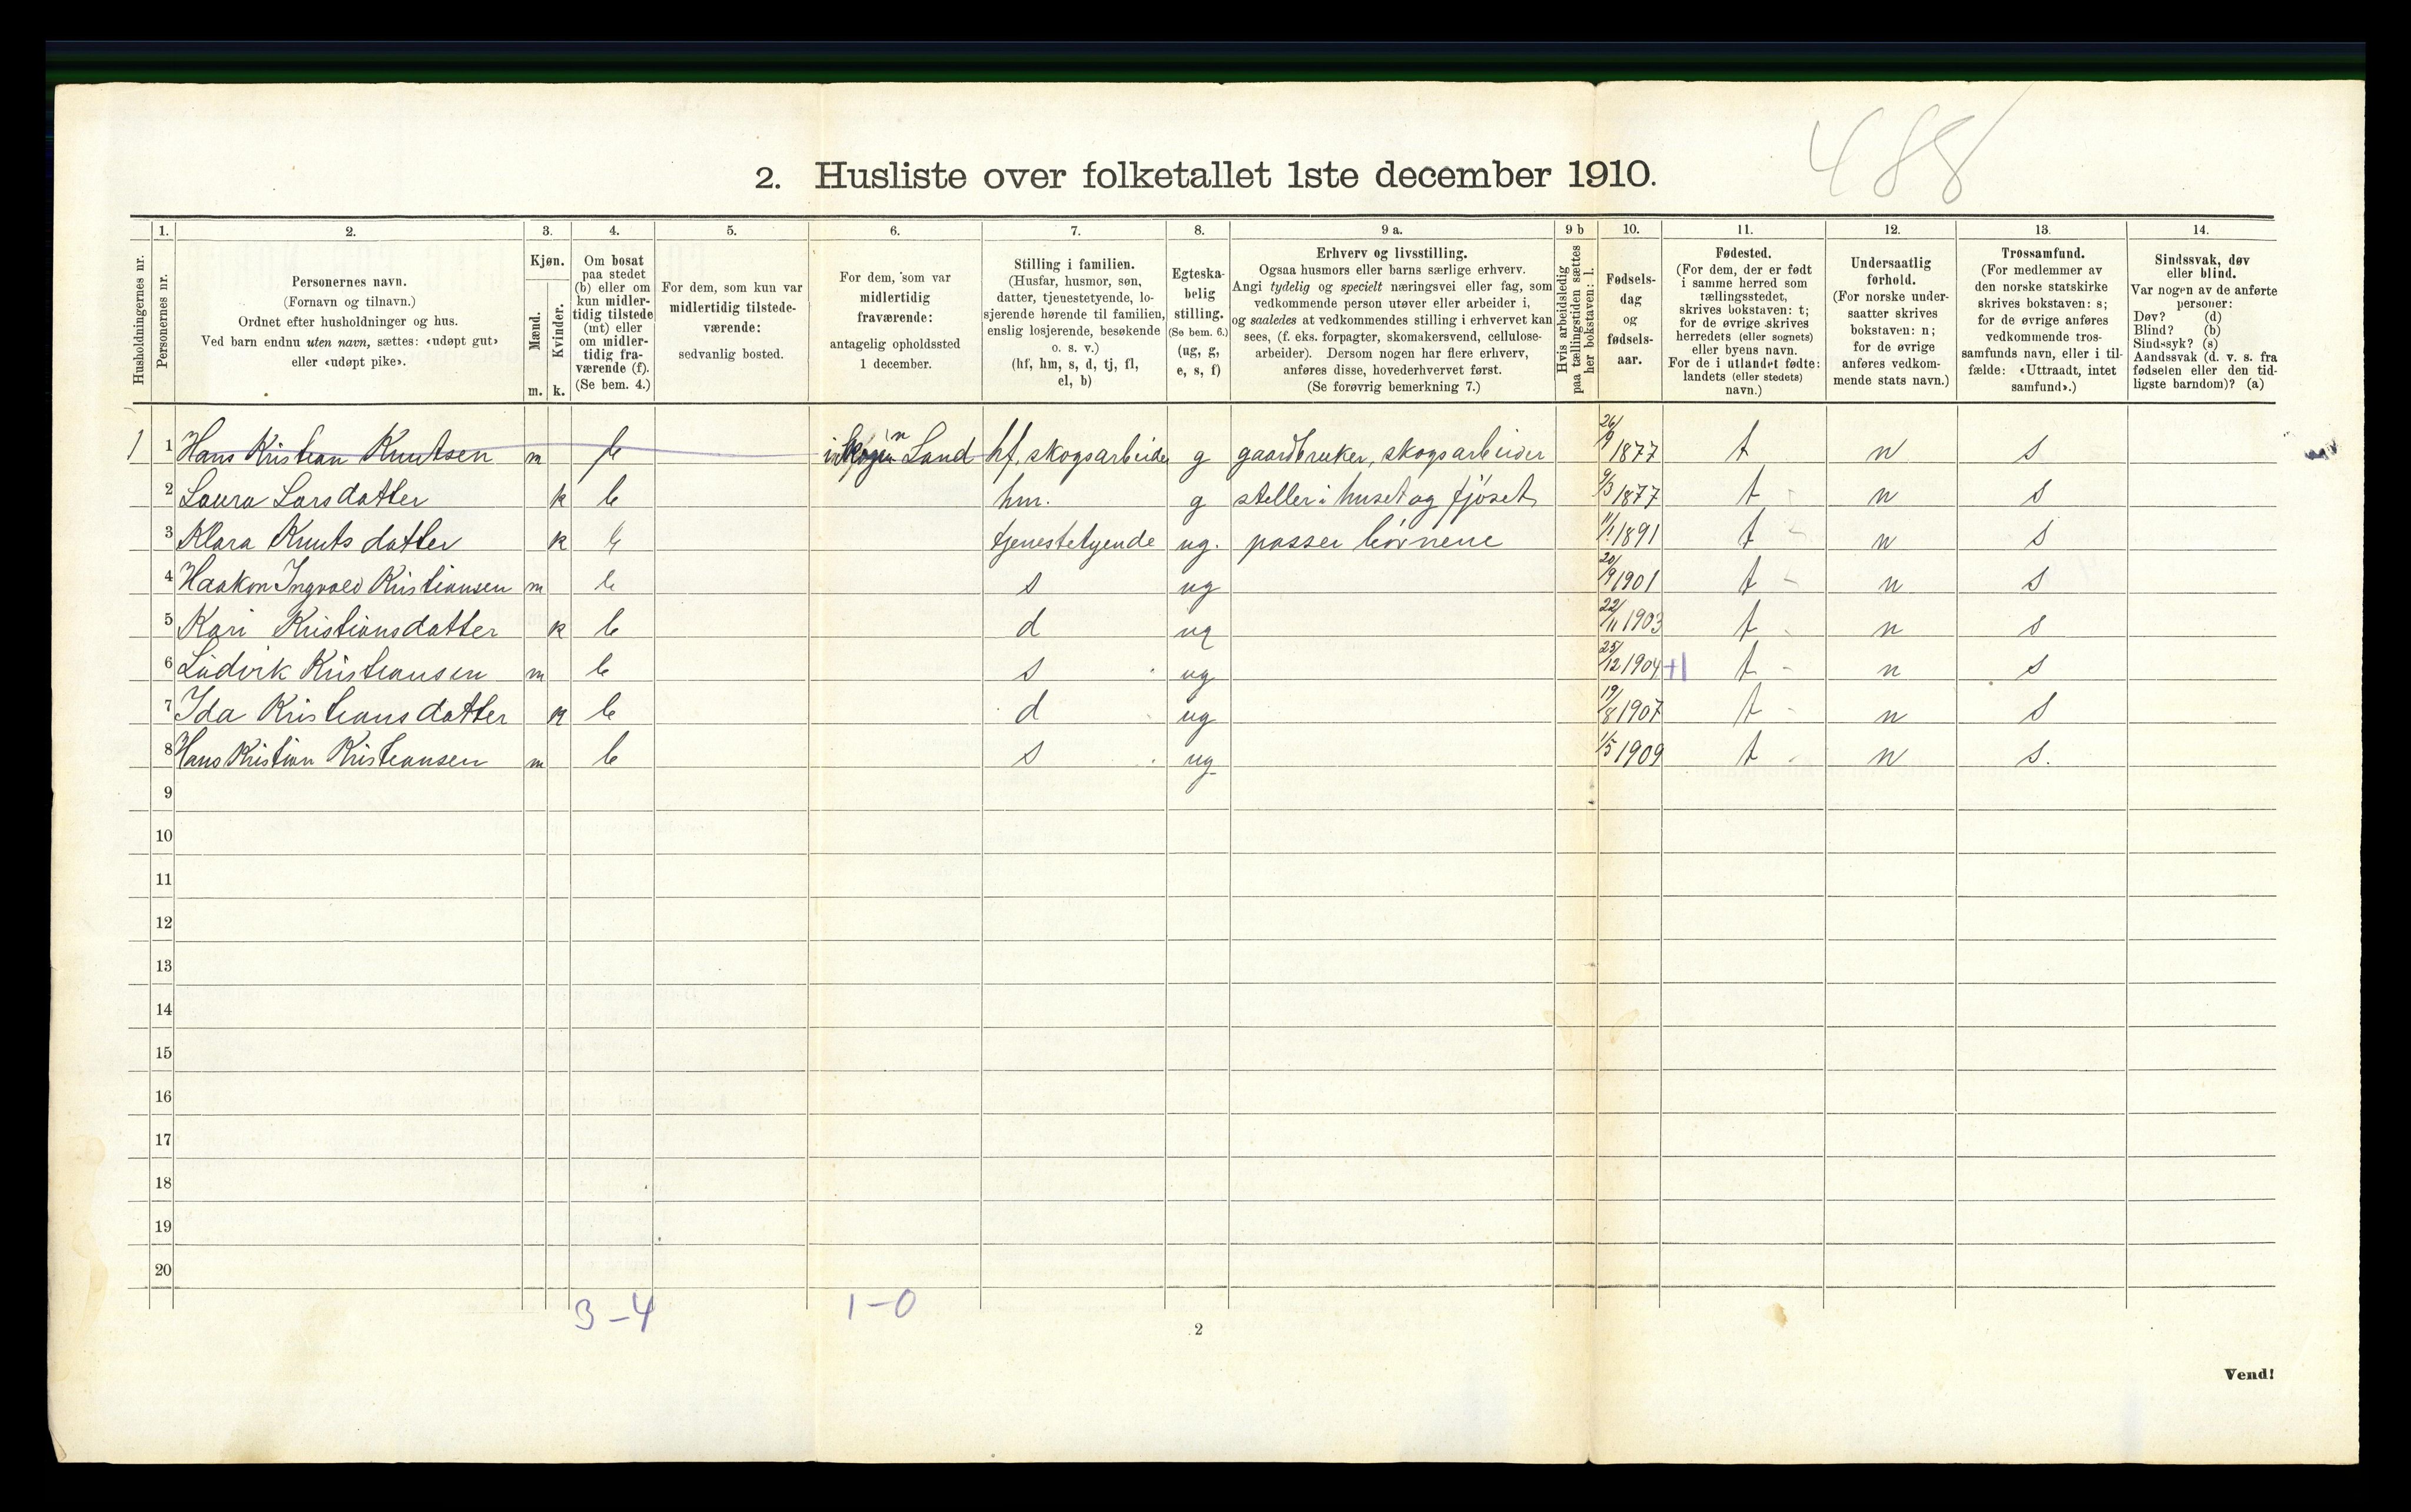 488
2. Husliste over folketallet 1ste december 1910.
1. 2. 3. 4. 5. 6. 7. 8. 9 a. 9 b 10. 11. 12. 13. 14.
Husholdningernes nr.
Personernes nr.
Personernes navn.
(Fornavn og tilnavn.)
Ordnet efter husholdninger og hus.
Ved barn endnu uten navn, sættes: «udøpt gut»
eller «udøpt pike».
Kjøn.
Mænd.
Kvinder.
m. k.
Om bosat
paa stedet
(b) eller om
kun midler-
tidig tilstede
(mt) eller
om midler-
tidig fra-
værende (f).
(Se bem. 4.)
For dem, som kun var
midlertidig tilstede-
værende:
sedvanlig bosted.
For dem, som var
midlertidig
fraværende:
antagelig opholdssted
1 december.
Stilling i familien.
(Husfar, husmor, søn,
datter, tjenestetyende, lo-
sjerende hørende til familien,
enslig losjerende, besøkende
o. s. v.)
(hf, hm, s, d, tj, fl,
el, b)
Egteska-
belig
stilling.
(Se bem. 6.)
(ug, g,
e, s, f)
Erhverv og livsstilling.
Ogsaa husmors eller barns særlige erhverv.
Angi tydelig og specielt næringsvei eller fag, som
vedkommende person utøver eller arbeider i,
og saaledes at vedkommendes stilling i erhvervet kan
sees, (f. eks. forpagter, skomakersvend, cellulose-
arbeider). Dersom nogen har flere erhverv,
anføres disse, hovederhvervet først.
(Se forøvrig bemerkning 7.)
Hvis arbeidsledig
paa tællingstiden sættes
her bokstaven: l.
Fødsels-
dag
og
fødsels-
aar.
Fødested.
(For dem, der er født
i samme herred som
tællingsstedet,
skrives bokstaven: t;
for de øvrige skrives
herredets (eller sognets)
eller byens navn.
For de i utlandet fødte:
landets (eller stedets)
navn.)
Undersaatlig
forhold.
(For norske under-
saatter skrives
bokstaven: n;
for de øvrige
anføres vedkom-
mende stats navn.)
Trossamfund.
(For medlemmer av
den norske statskirke
skrives bokstaven: s;
for de øvrige anføres
vedkommende tros-
samfunds navn, eller i til-
fælde: «Uttraadt, intet
samfund».)
Sindssvak, døv
eller blind.
Var nogen av de anførte
personer:
Døv? (d)
Blind? (b)
Sindssyk? (s)
Aandssvak (d. v. s. fra
fødselen eller den tid-
ligste barndom)? (a)
1 1 Hans Kristian Knutsen m Land hf, skogsarbeider g gaardbruker, skogsarbeider 26/9 1877 t n s
2 Laura Larsdatter k b hm. g steller i huset og fjöset 9/3 1877 t n s
3 Klara Knutsdatter k b tjenestetyende ug. passer börnene 11/1 1891 t n s
4 Haakon Ingvald Kristiansen m b s ug 20/9 1901 t n s
5 Kari Kristiansdatter k b d ug 22/11 1903 t n s
6 Ludvik Kristiansen m b s ug 25/12 1904 +1 t n s
7 Ida Kristiansdatter k b d ug 19/8 1907 t n s
8 Hans Kristian Kristiansen m b s ug 1/5 1909 t n s.
9
10
11
12
13
14
15
16
17
18
19
20
3-4 1-0
2
Vend!